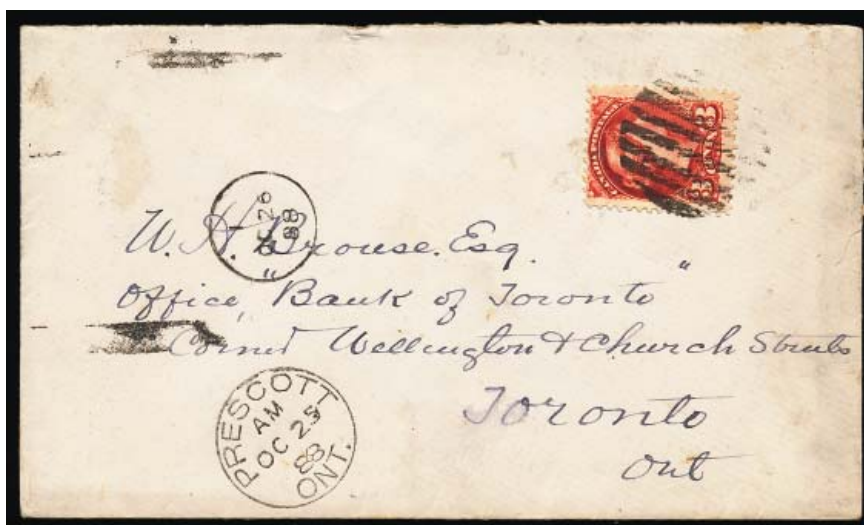 3 CENTS 3
OC 26
88
W. H. Brouse. Esq.
Office, "Bank of Toronto"
Corner Wellington & Church Streets
Toronto
Ont
PRESCOTT
AM
OC 25
88
ONT.